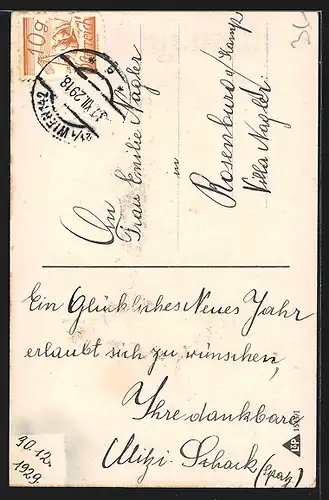 10g
24/1 WIEN 142
30.XII.29 18
* 9 *
An
Frau Emilie Nagler
in
Rosenburg a/ Kamp
Villa Nagler
Ein Glückliches Neues Jahr
erlaubt sich zu wünschen,
Ihre dankbare
Mitzi Schack
30.12.
1929
L&P